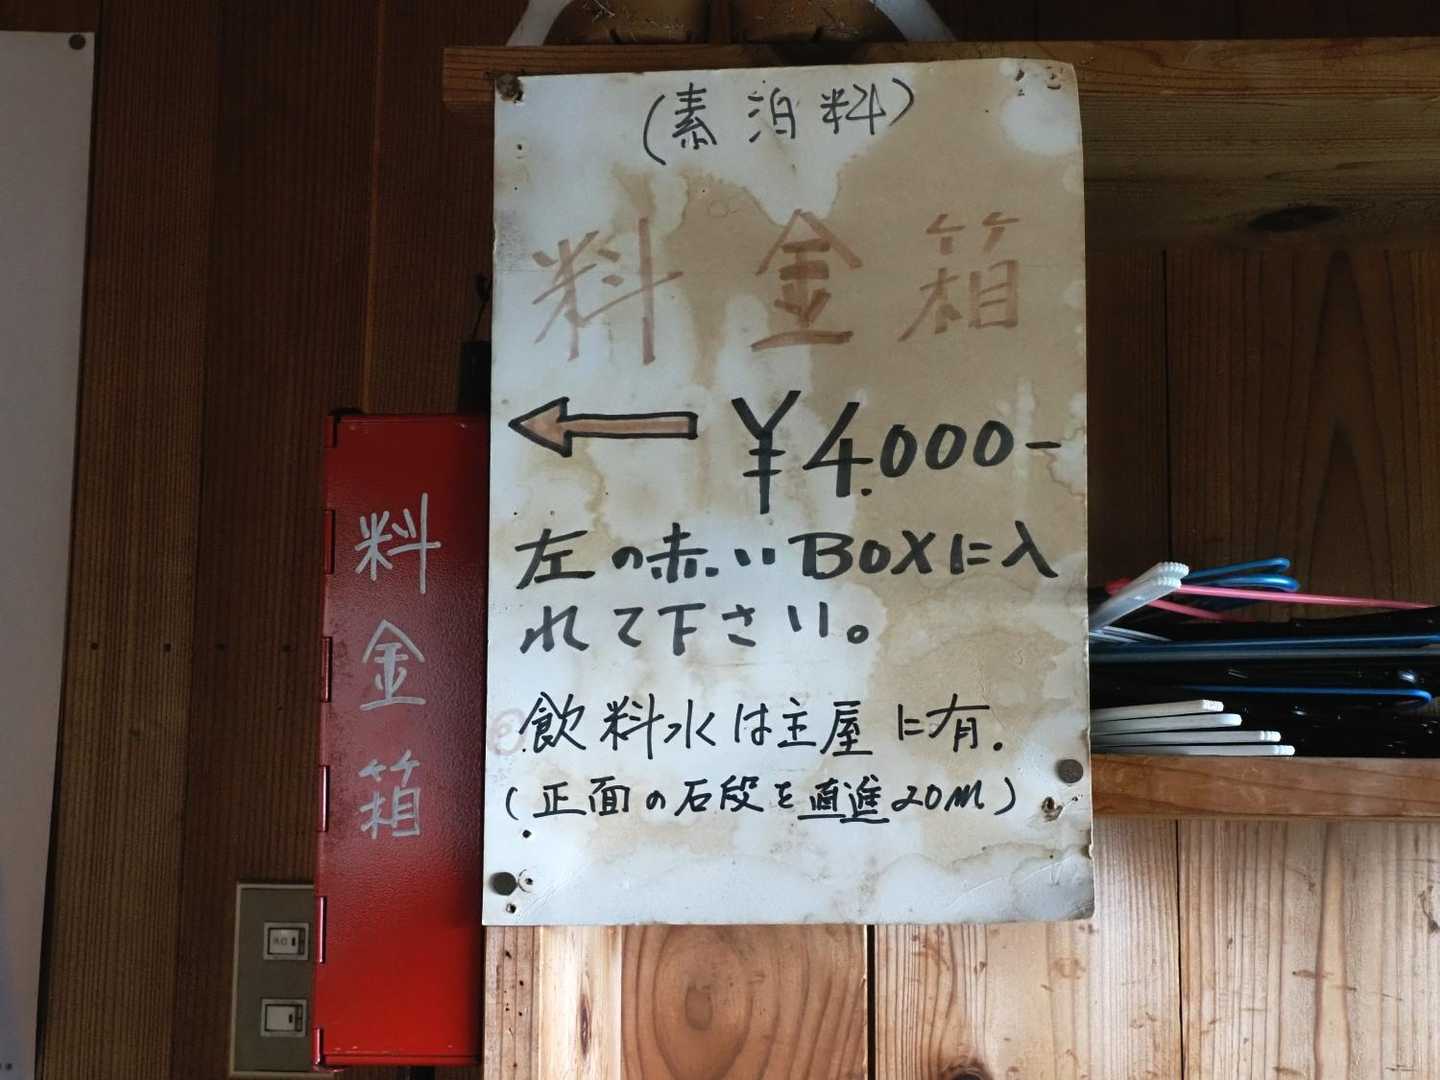 (素泊料)
料金箱
¥4.000-
左の赤いBOXに入
れて下さい。
飲料水は主屋に有.
(正面の石段を直進20m)
料金箱